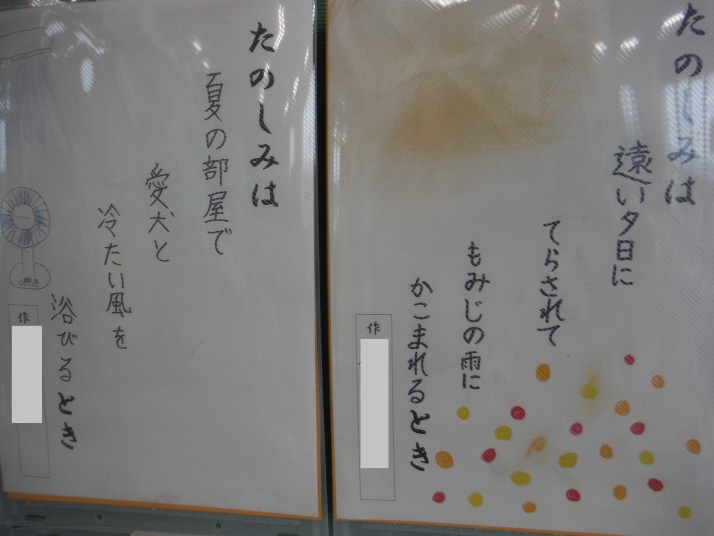 たのしみは
遠い夕日に
てらされて
もみじの雨に
かこまれるとき
作
たのしみは
夏の部屋で
愛犬と
冷たい風を
浴びるとき
作